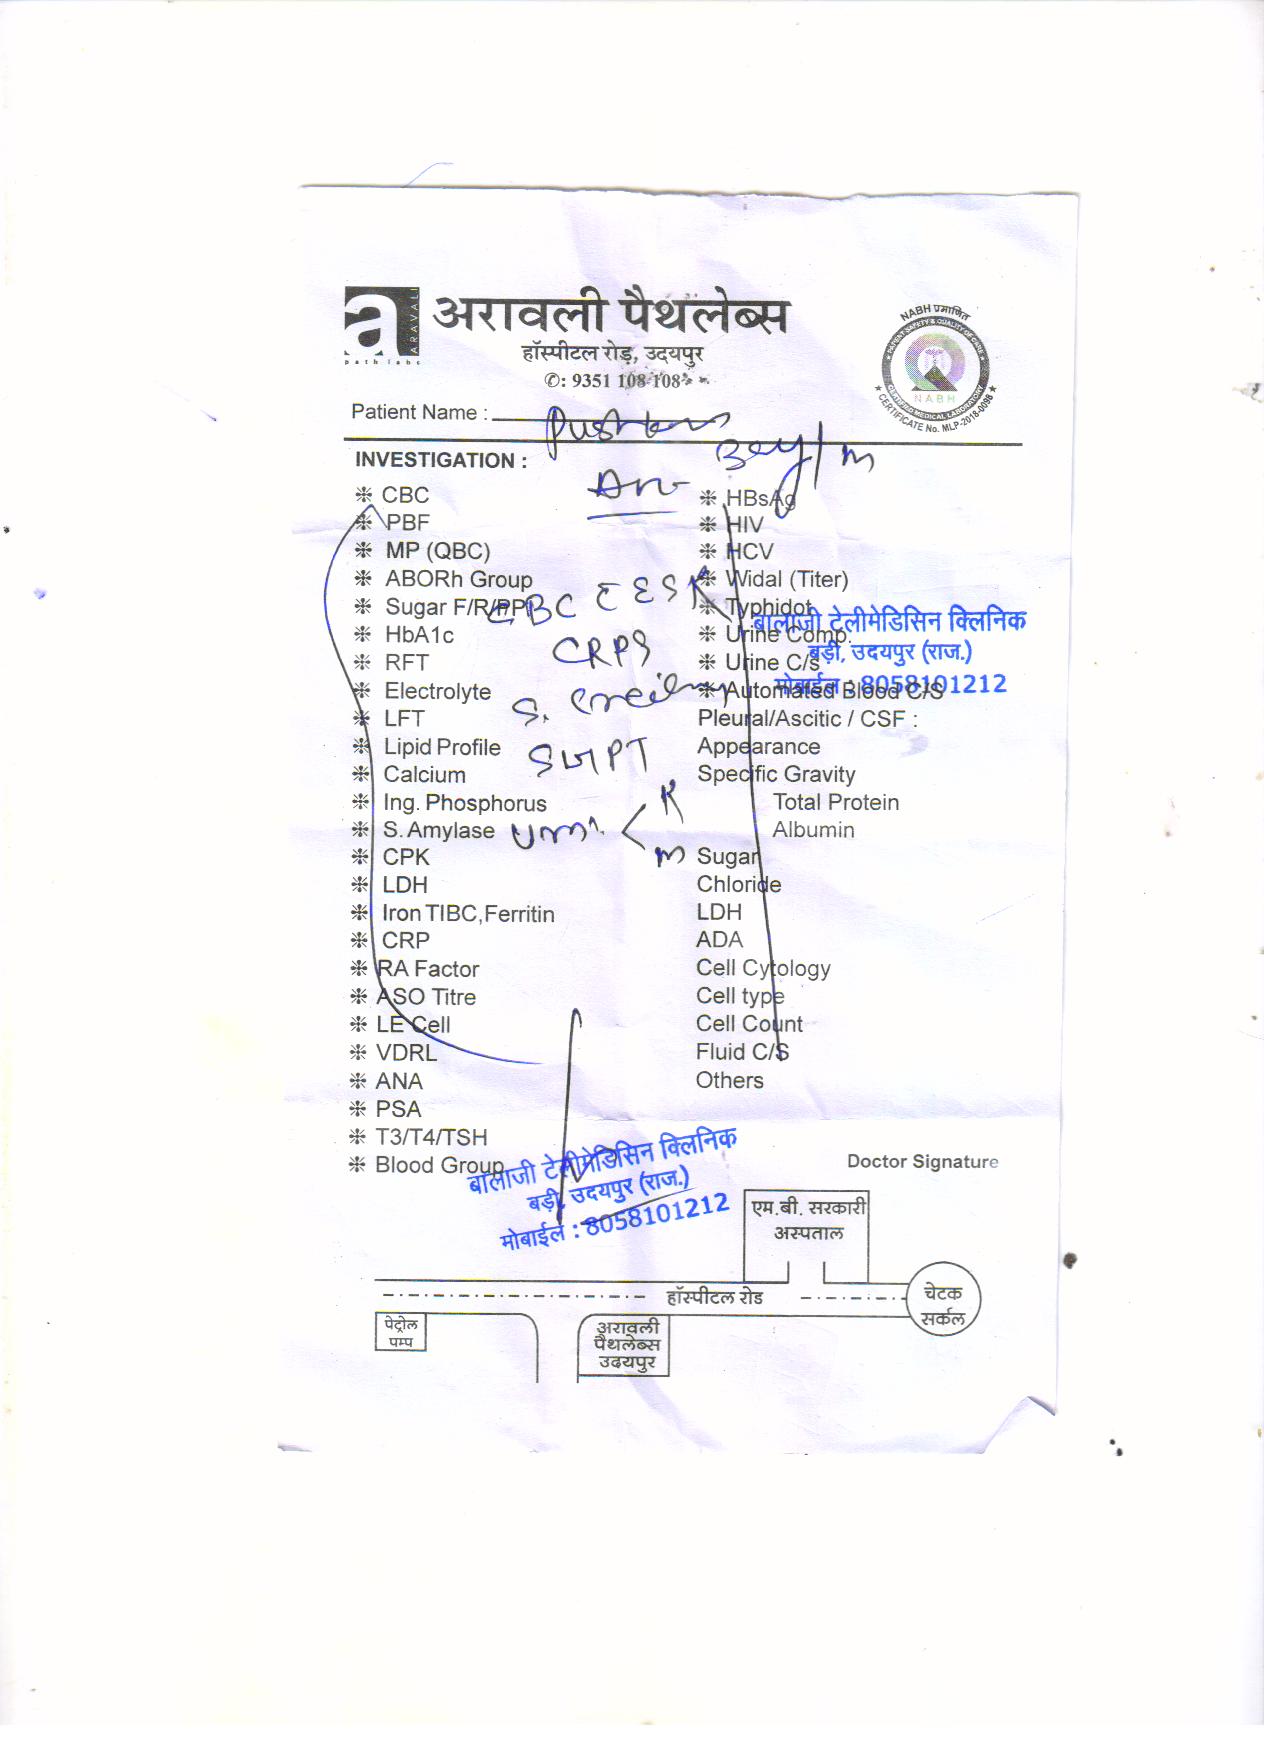 a ARAVALI
path labs
अरावली पैथलेब्स
हॉस्पीटल रोड़, उदयपुर
✆: 9351 108 108
NABH प्रमाणित
PATIENT SAFETY & QUALITY OF CARE
NABH
CERTIFICATE No. MLP-2018-0098
Patient Name :
INVESTIGATION :
CBC
PBF
MP (QBC)
ABORh Group
Sugar F/R/PP
HbA1c
RFT
Electrolyte
LFT
Lipid Profile
Calcium
Ing. Phosphorus
S. Amylase
CPK
LDH
Iron TIBC,Ferritin
CRP
RA Factor
ASO Titre
LE Cell
VDRL
ANA
PSA
T3/T4/TSH
Blood Group
CBC ESR
CRPS
S.
SGPT
K
m
HBsAg
HIV
HCV
Widal (Titer)
Typhidot
Urine Comp.
Urine C/s
Automated Blood C/S
Pleural/Ascitic / CSF :
Appearance
Specific Gravity
Total Protein
Albumin
Sugar
Chloride
LDH
ADA
Cell Cytology
Cell type
Cell Count
Fluid C/S
Others
बालाजी टेलीमेडिसिन क्लिनिक
बड़ी, उदयपुर (राज.)
मोबाईल : 8058101212
बालाजी टेलीमेडिसिन क्लिनिक
बड़ी, उदयपुर (राज.)
मोबाईल : 8058101212
Doctor Signature
एम.बी. सरकारी
अस्पताल
हॉस्पीटल रोड
चेटक
सर्कल
पेट्रोल
पम्प
अरावली
पैथलेब्स
उदयपुर